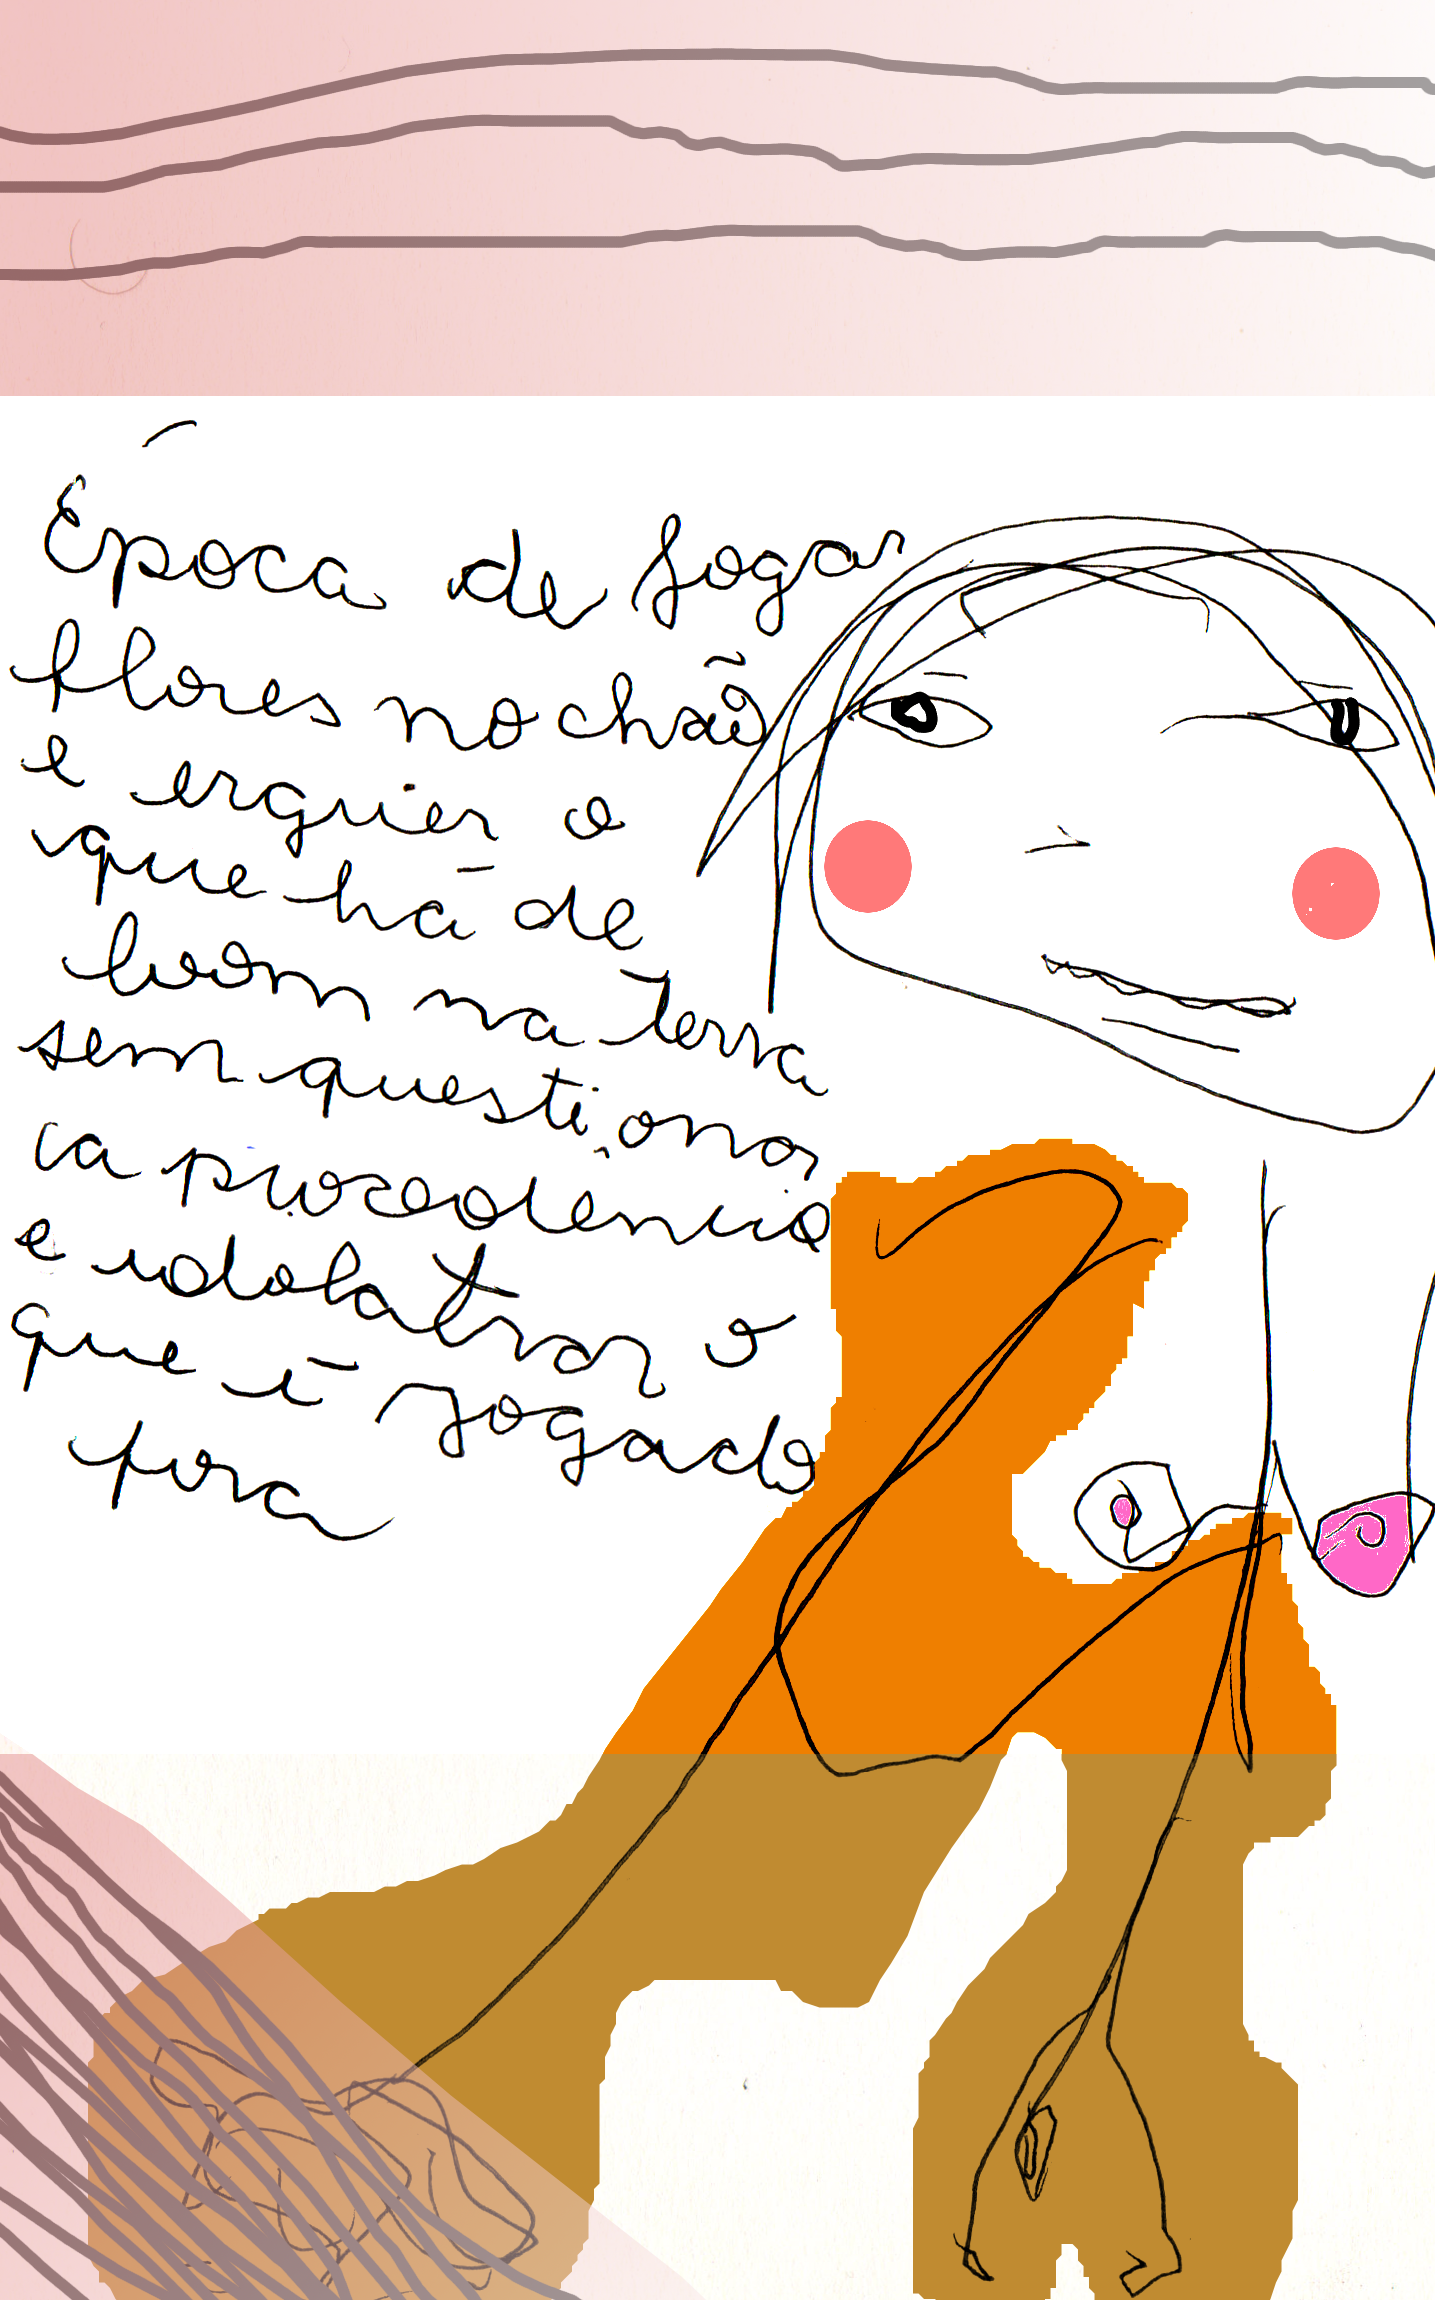 Época de jogar
flores no chão
e erguier o
que há de
bom na terra
sem questionar
a procedência
e idolatrar o
que é jogado
fora